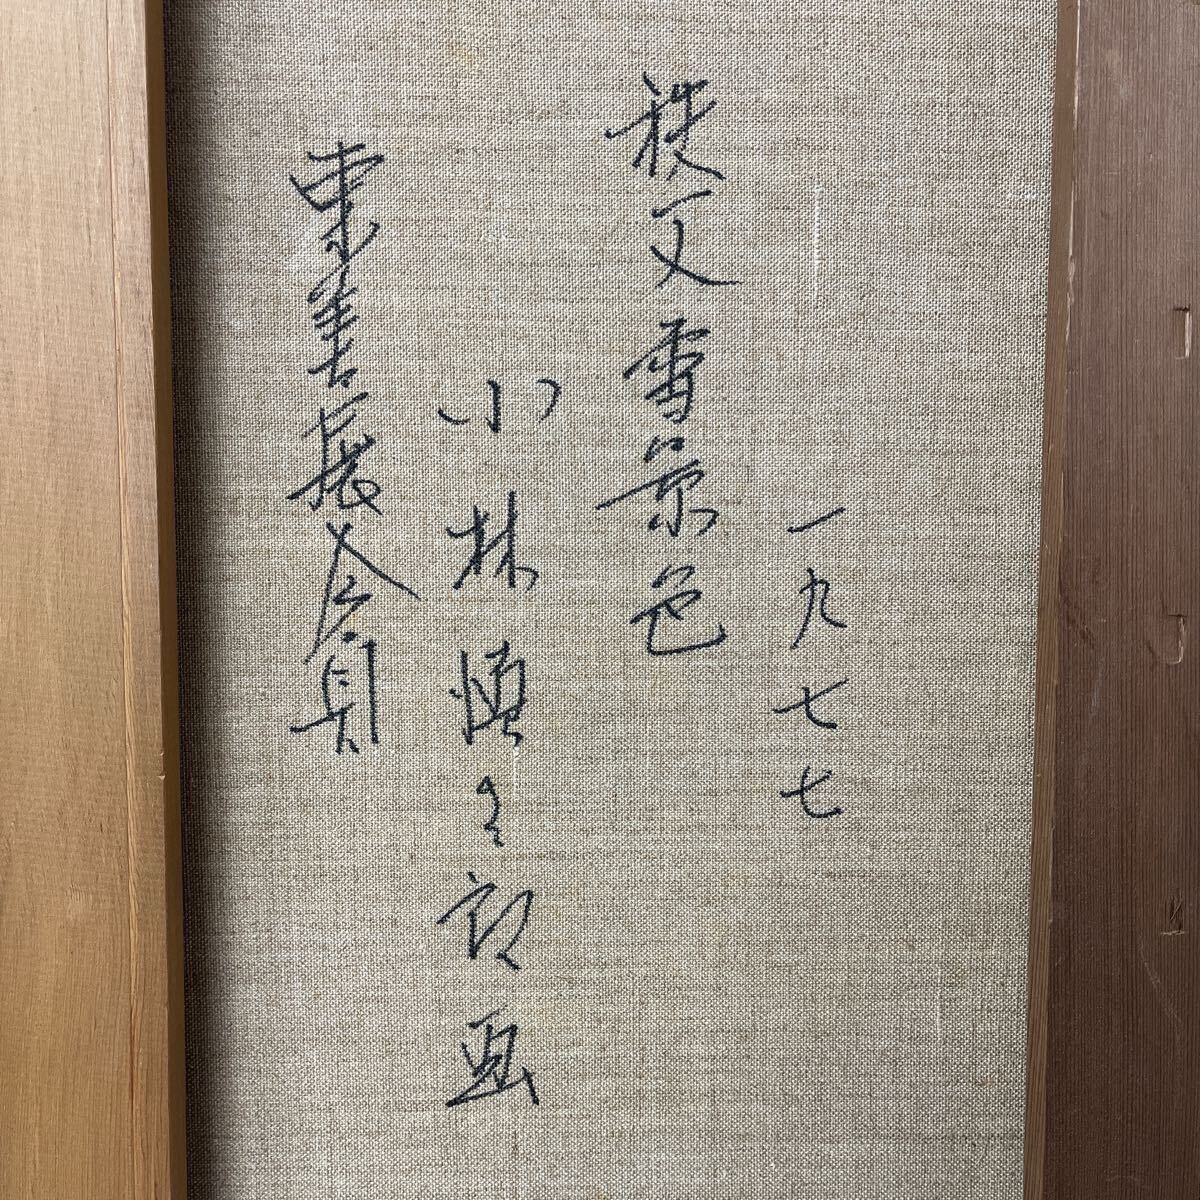 一九七七
秩父雪景色
小林慎之郎画
東美展会員